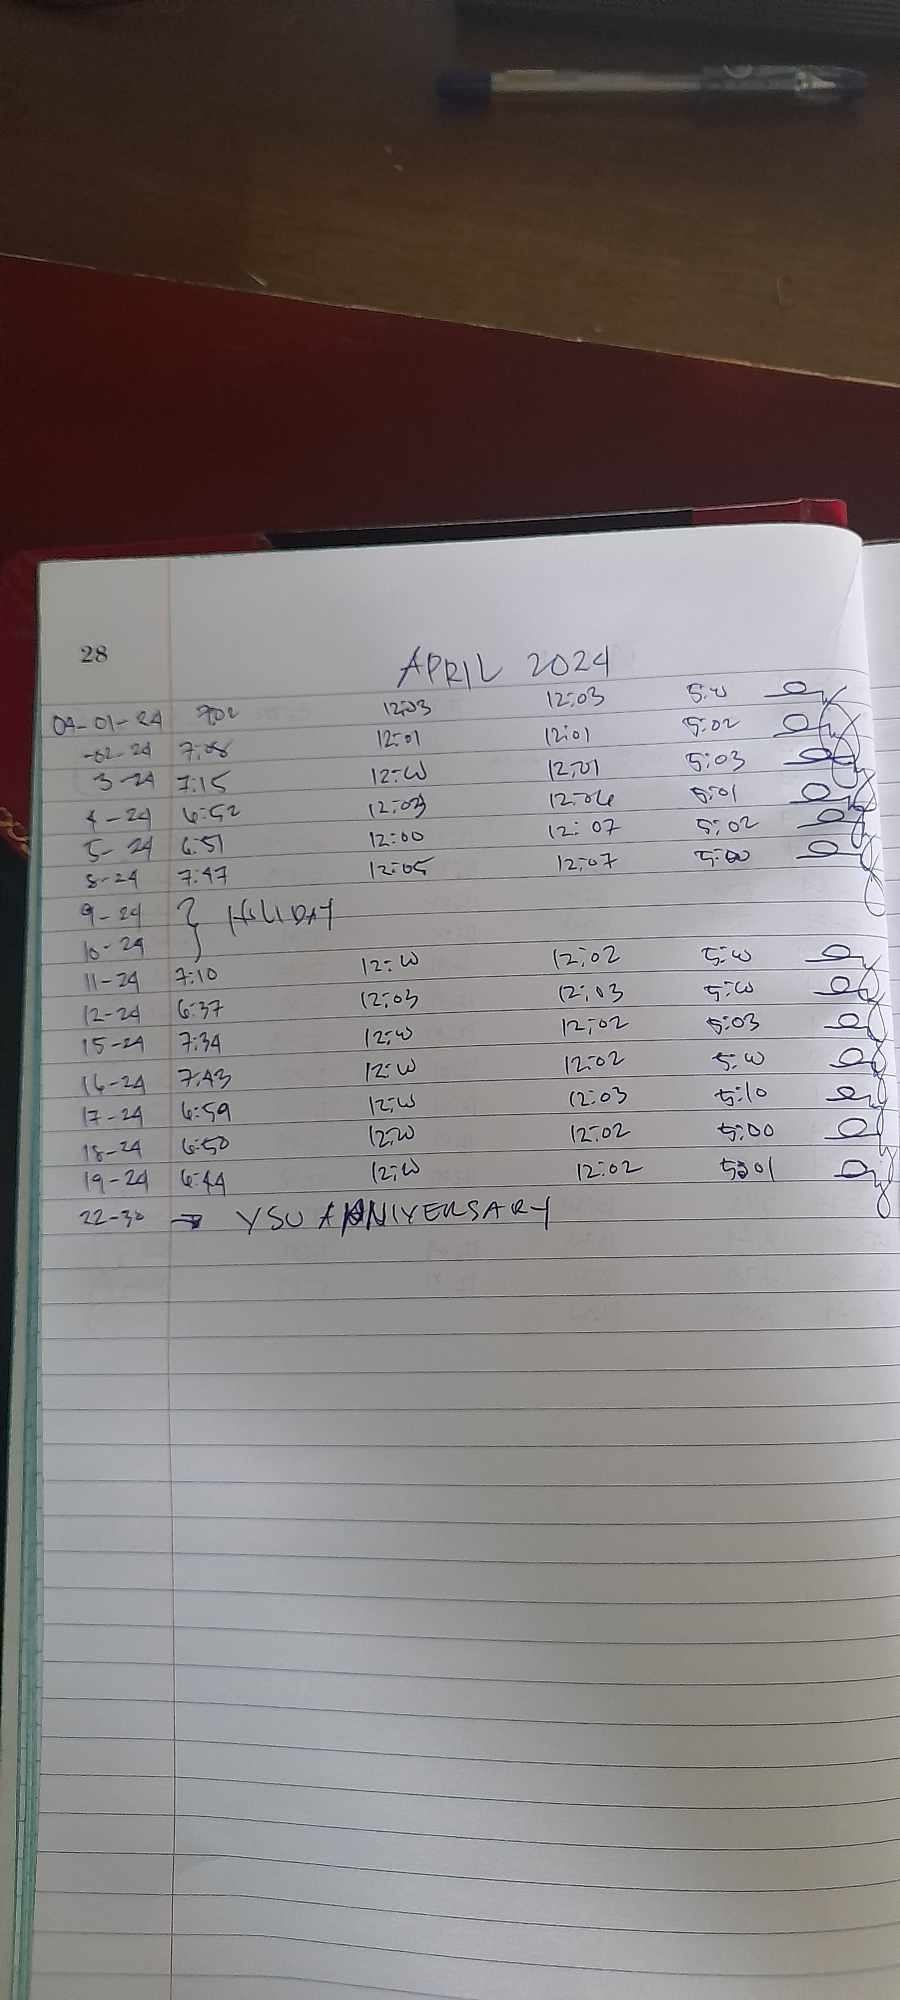 28
APRIL 2024
04-01-24 7:02 12:03 12:03 5:00
-02-24 7:08 12:01 12:01 5:02
3-24 7:15 12:00 12:01 5:03
4-24 6:52 12:03 12:06 5:01
5-24 6:51 12:00 12:07 5:02
8-24 7:47 12:05 12:07 5:00
9-24 } HOLIDAY
10-24
11-24 7:10 12:00 12:02 5:00
12-24 6:37 12:03 12:03 5:00
15-24 7:34 12:00 12:02 5:03
16-24 7:43 12:00 12:02 5:00
17-24 6:59 12:00 12:03 5:10
18-24 6:50 12:00 12:02 5:00
19-24 6:44 12:00 12:02 5:01
22-30 → YSU ANNIVERSARY